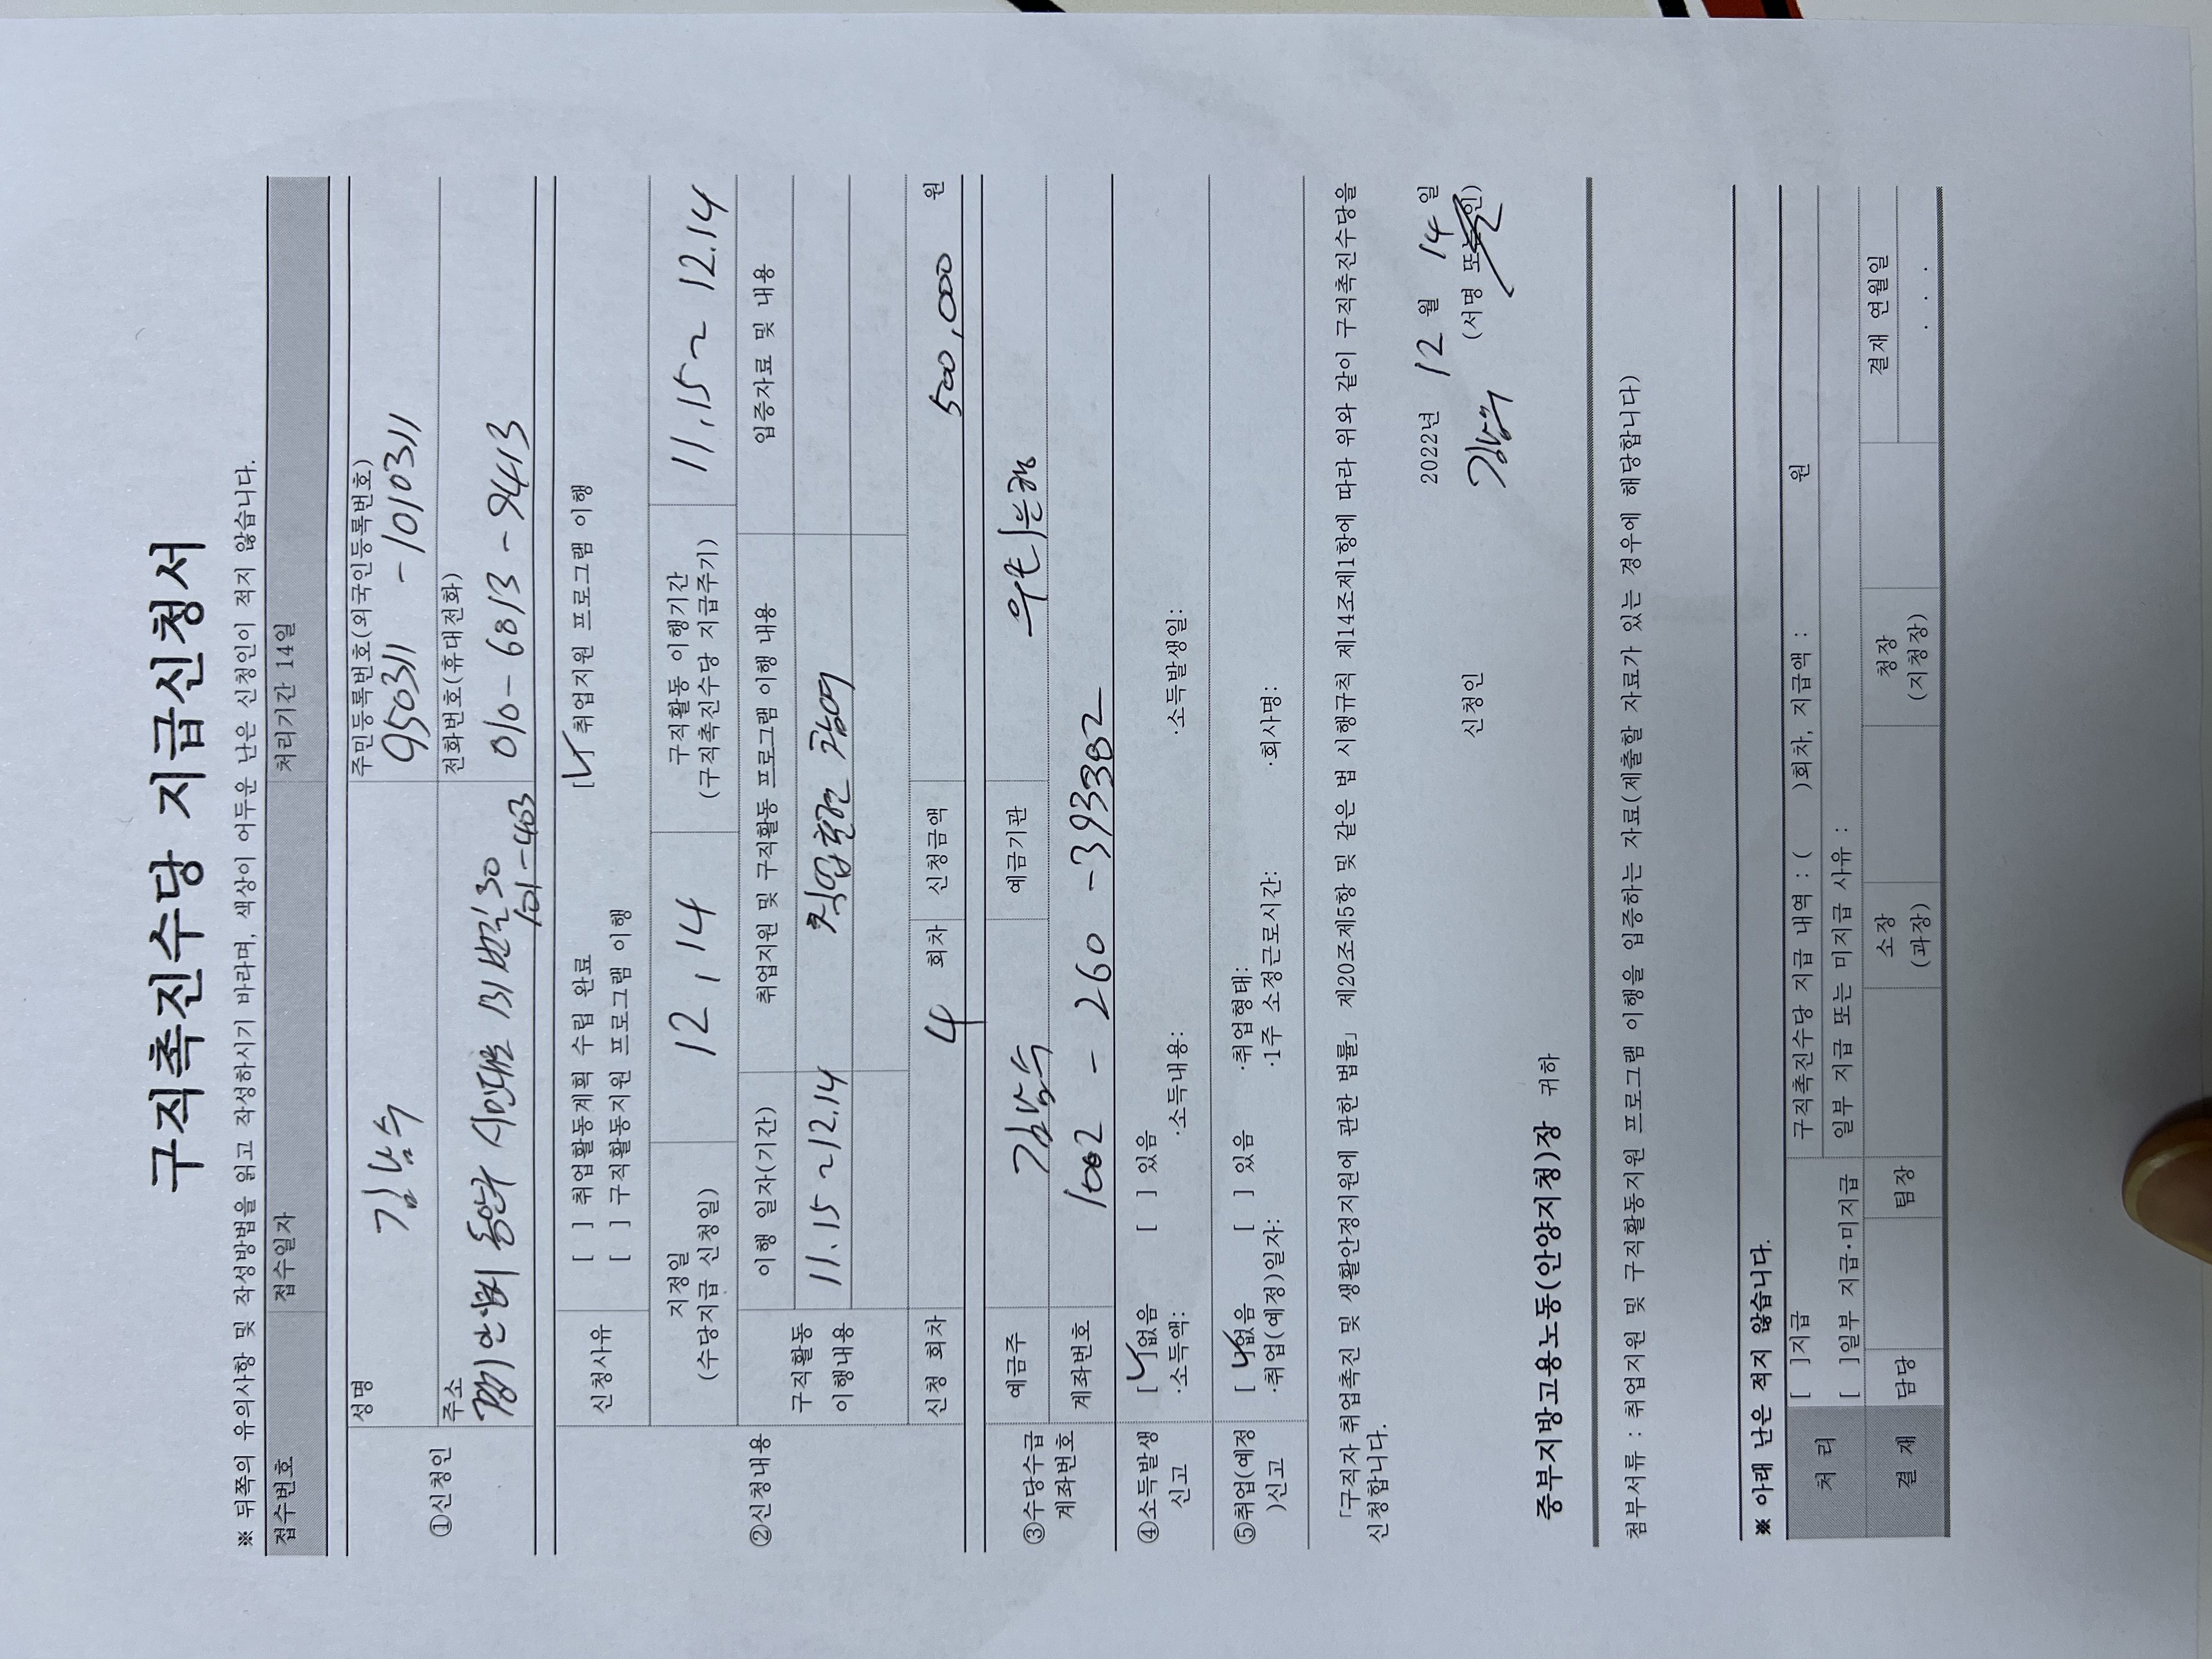 구직촉진수당 지급신청서
※ 뒤쪽의 유의사항 및 작성방법을 읽고 작성하시기 바라며, 색상이 어두운 난은 신청인이 적지 않습니다.
접수번호 접수일자 처리기간 14일
①신청인
성명 김남수 주민등록번호(외국인등록번호) 950311 -1010311
주소 경기 안양시 동안구 시민대로 131번길 30 전화번호(휴대전화) 010-6813-9413
101-403
②신청내용
신청사유 [ ] 취업활동계획 수립 완료 [✓] 취업지원 프로그램 이행
[ ] 구직활동지원 프로그램 이행
지정일 (수당지급 신청일) 12, 14 구직활동 이행기간 (구직촉진수당 지급주기) 11.15~ 12.14
구직활동 이행내용
이행 일자(기간) 취업지원 및 구직활동 프로그램 이행 내용 입증자료 및 내용
11.15 ~12.14 직업훈련 참여
신청 회차 4 회차 신청금액 500,000 원
③수당수급 계좌번호
예금주 김남수 예금기관 우리은행
계좌번호 1002 - 260 -393382
④소득발생 신고
[✓]없음 [ ] 있음
·소득액: ·소득내용: ·소득발생일:
⑤취업(예정)신고
[✓]없음 [ ] 있음 ·취업형태:
·취업(예정)일자: ·1주 소정근로시간: ·회사명:
「구직자 취업촉진 및 생활안정지원에 관한 법률」 제20조제5항 및 같은 법 시행규칙 제14조제1항에 따라 위와 같이 구직촉진수당을
신청합니다.
2022년 12 월 14 일
신청인 김남수 (서명 또는 인)
중부지방고용노동(안양지청)장 귀하
첨부서류 : 취업지원 및 구직활동지원 프로그램 이행을 입증하는 자료(제출할 자료가 있는 경우에 해당합니다)
※ 아래 난은 적지 않습니다.
처 리
[ ]지급 구직촉진수당 지급 내역 : ( )회차, 지급액 : 원
[ ]일부 지급·미지급 일부 지급 또는 미지급 사유 :
결 재 담당 팀장 소장 (과장) 청장 (지청장) 결재 연월일
. . .